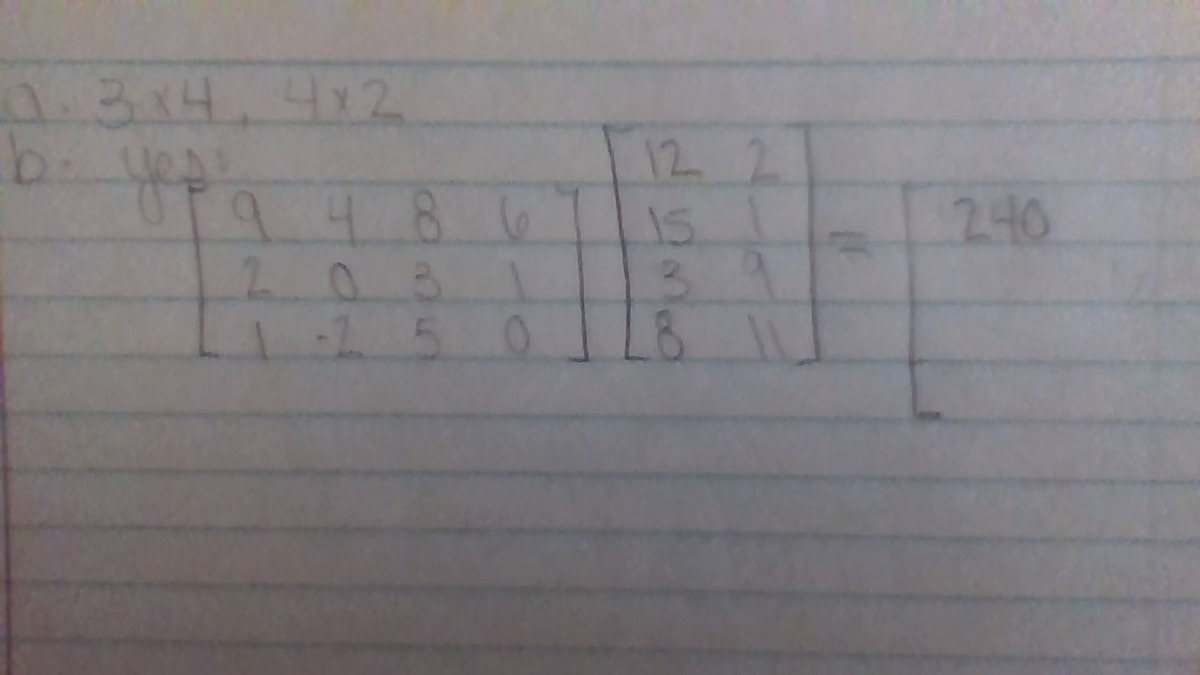 a. 3×4, 4×2
b. yes:
[ 9 4 8 6
2 0 3 1
1 -2 5 0 ] [ 12 2
15 1
3 9
8 11 ] = [ 240